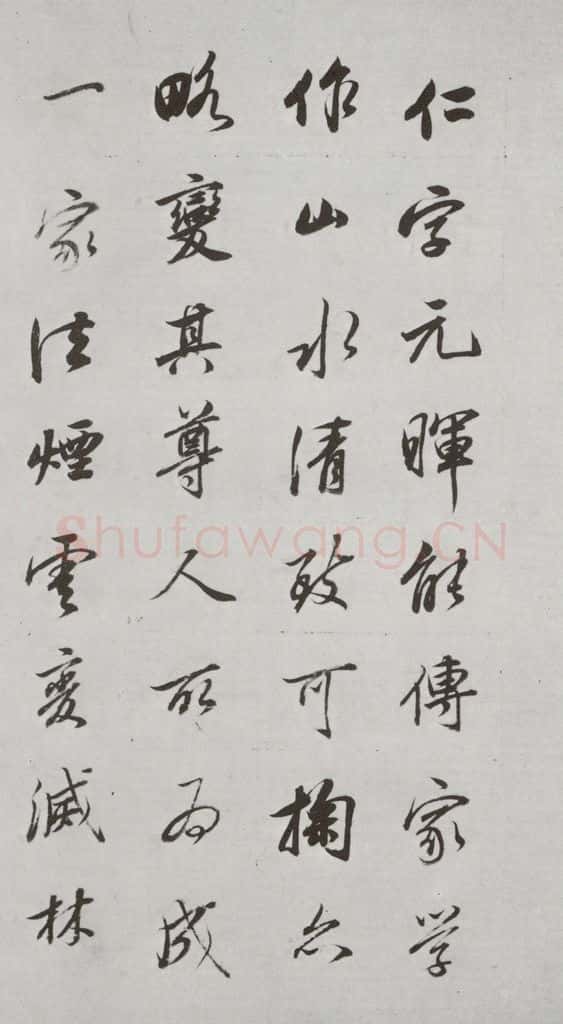 仁字元暉能傳家學
作山水清致可掬亦
略變其尊人所為成
一家法煙雲變滅林
Shufawang.CN